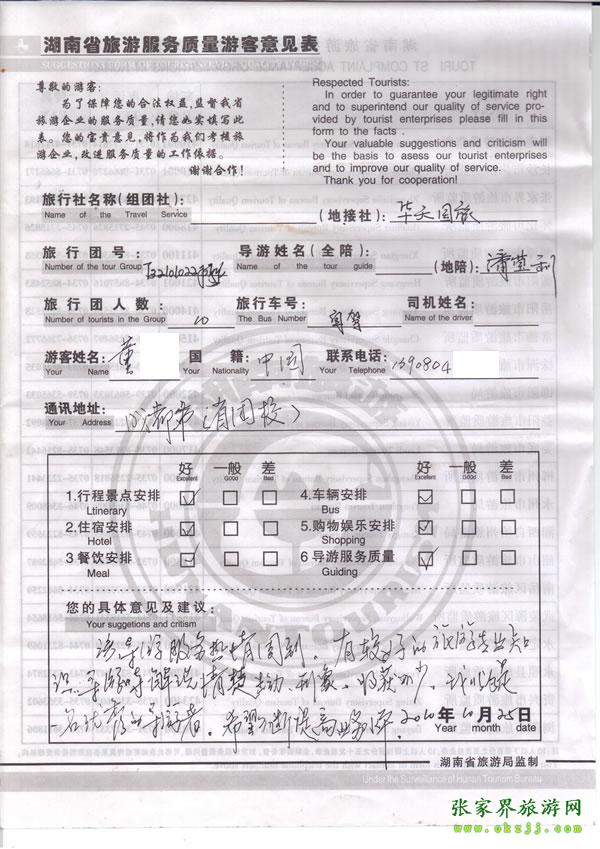 湖南省旅游服务质量游客意见表
尊敬的游客:
为了保障您的合法权益,监督我省
旅游企业的服务质量,请您如实填写此
表。您的宝贵意见,将作为我们考核旅
游企业,改进服务质量的工作依据。
谢谢合作!
Respected Tourists:
In order to guarantee your legitimate right
and to superintend our quality of service pro-
vided by tourist enterprises please fill in this
form to the facts .
Your valuable suggestions and criticism will
be the basis to asess our tourist enterprises
and to improve our quality of service.
Thank you for cooperation!
旅行社名称(组团社): (地接社): 华天国旅
Name of the Travel Service
旅行团号: 导游姓名(全陪): (地陪):
Number of the tour Group Name of the tour guide
旅行团人数: 10 旅行车号: 司机姓名:
Number of tourists in the Group The Bus Number Name of the driver
游客姓名: 董 国籍: 中国 联系电话: 1390804
Your Name Your Nationality Your Telephone
通讯地址: 成都市(省团校)
Your Address
好 一般 差 好 一般 差
Excellent Good Bad Excellent Good Bad
1.行程景点安排 4.车辆安排
Ltinerary Bus
2.住宿安排 5.购物娱乐安排
Hotel Shopping
3 餐饮安排 6 导游服务质量
Meal Guiding
您的具体意见及建议:
Your suggetions and critism
该导游服务热情周到,有较好的旅游专业知
识,导游讲解清楚生动、形象,收获不少,
一名优秀的导游者。希望不断提高业务水平。 2010年10月25日
Year month date
湖南省旅游局监制
Under the Surveillance of Hunan Tourism Bureau
张家界旅游网
www.okzjj.com